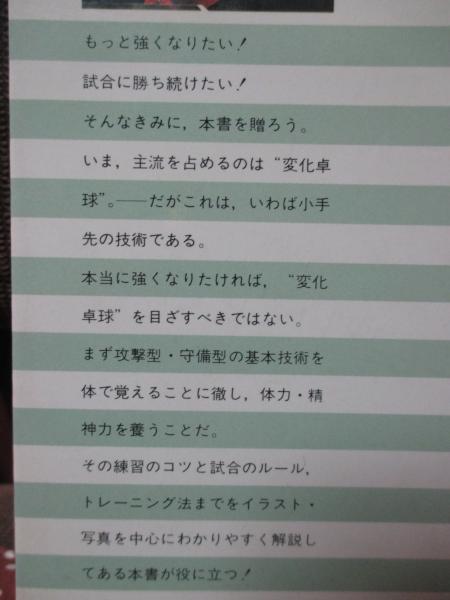 もっと強くなりたい!
試合に勝ち続けたい!
そんなきみに，本書を贈ろう。
いま，主流を占めるのは“変化卓
球”。――だがこれは，いわば小手
先の技術である。
本当に強くなりたければ，“変化
卓球”を目ざすべきではない。
まず攻撃型・守備型の基本技術を
体で覚えることに徹し，体力・精
神力を養うことだ。
その練習のコツと試合のルール，
トレーニング法までをイラスト・
写真を中心にわかりやすく解説し
てある本書が役に立つ!